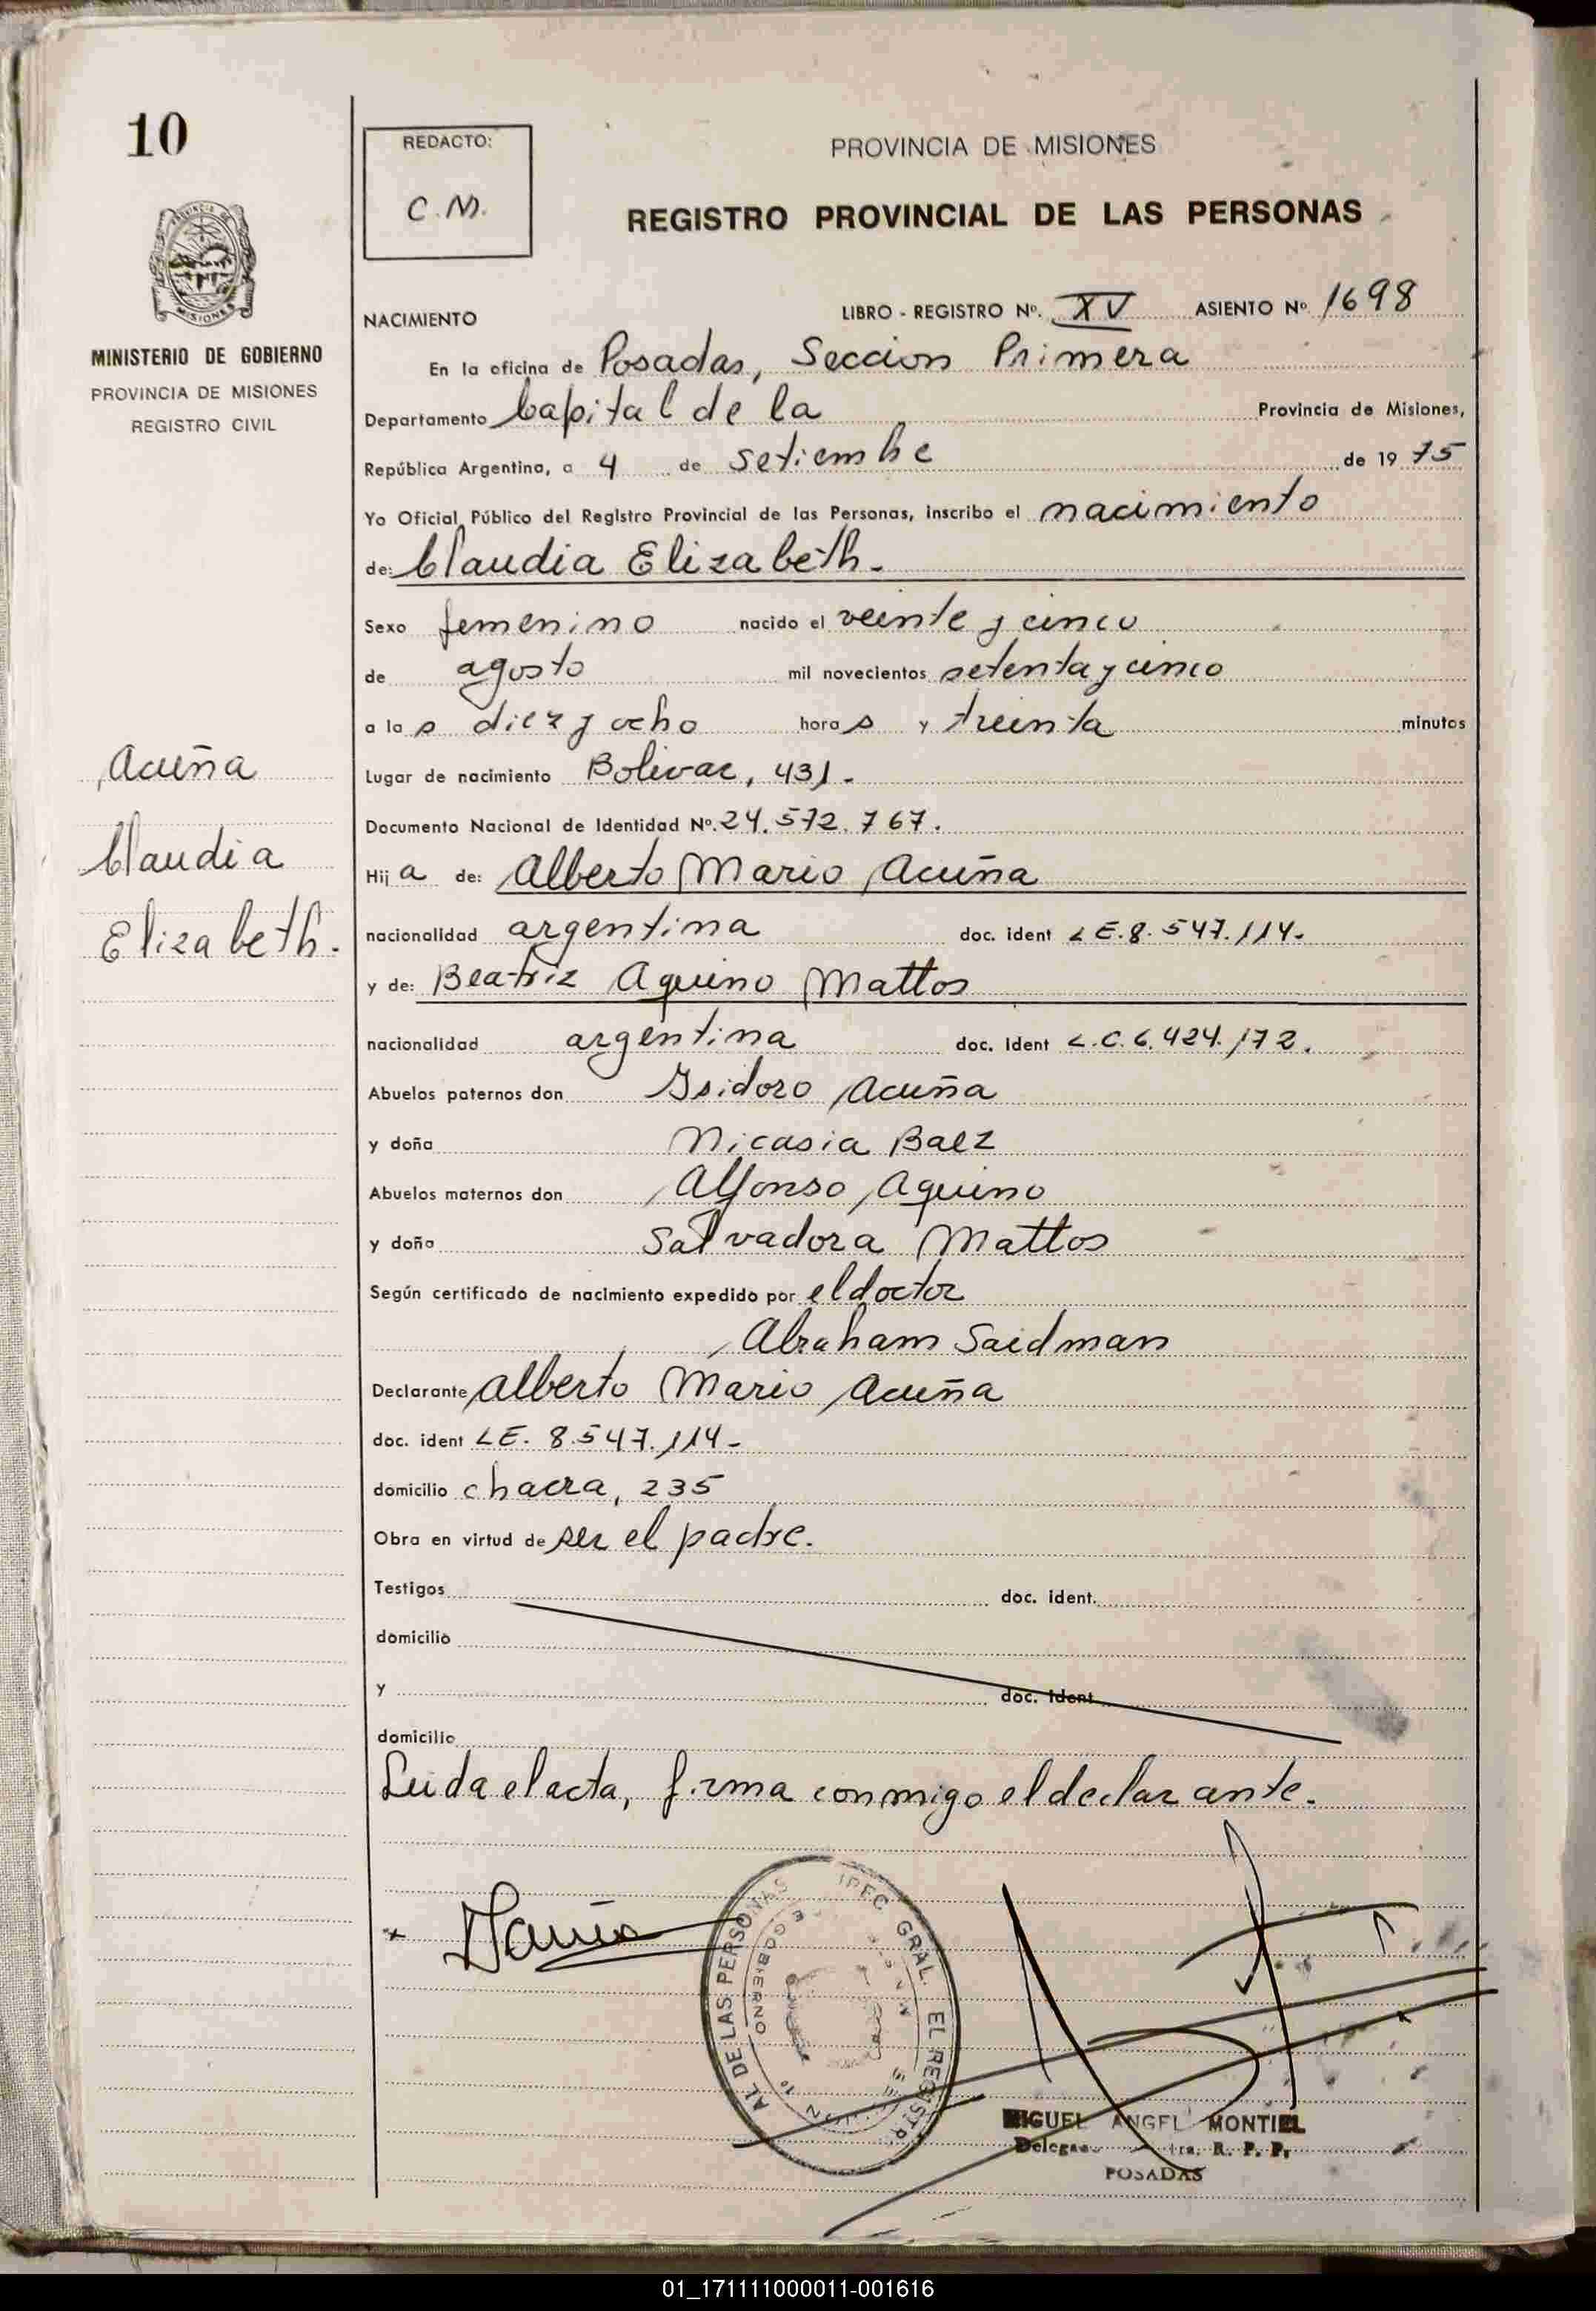 10
MISIONES
MINISTERIO DE GOBIERNO
PROVINCIA DE MISIONES
REGISTRO CIVIL
Acuña
Claudia
Elizabeth.
REDACTO:
C.M.
PROVINCIA DE MISIONES
REGISTRO PROVINCIAL DE LAS PERSONAS
NACIMIENTO LIBRO - REGISTRO Nº. XV ASIENTO Nº 1698
En la oficina de Posadas, Seccion Primera
Departamento Capital de la Provincia de Misiones,
República Argentina, a 4 de Setiembre de 1975
Yo Oficial Público del Registro Provincial de las Personas, inscribo el nacimiento
de: Claudia Elizabeth.
Sexo femenino nacido el veinte y cinco
de agosto mil novecientos setenta y cinco
a las diez y ocho horas y treinta minutos
Lugar de nacimiento Bolivar, 431.
Documento Nacional de Identidad Nº. 24.572.767.
Hija de: Alberto Mario Acuña
nacionalidad argentina doc. ident L E. 8.547.114.
y de: Beatriz Aquino Mattos
nacionalidad argentina doc. Ident L.C. 6.424.172.
Abuelos paternos don Isidoro Acuña
y doña Nicasia Baez
Abuelos maternos don Alfonso Aquino
y doña Salvadora Mattos
Según certificado de nacimiento expedido por el doctor
Abraham Saidman
Declarante Alberto Mario Acuña
doc. ident LE. 8.547.114-
domicilio chacra, 235
Obra en virtud de ser el padre.
Testigos doc. ident.
domicilio
y doc. ident
domicilio
Leida el acta, firma conmigo el declarante.
AL DE LAS PERSONAS GRAL. EL REGISTR
E GOBIERNO
MIGUEL ANGEL MONTIEL
R. P. P.
POSADAS
01_171111000011-001616